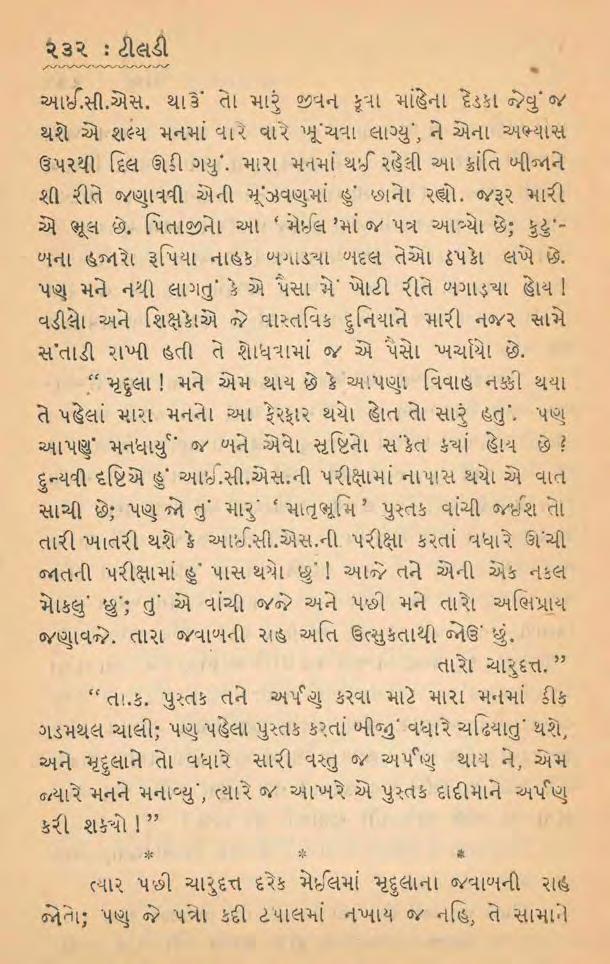 ૨૩૨ : ટીલડી
આઈ.સી.એસ. થાઉં તો મારું જીવન કૂવા માંહેના દેડકા જેવું જ
થશે એ શલ્ય મનમાં વારે વારે ખૂંચવા લાગ્યું, ને એના અભ્યાસ
ઉપરથી દિલ ઊડી ગયું. મારા મનમાં થઈ રહેલી આ ક્રાંતિ બીજાને
શી રીતે જણાવવી એની મૂંઝવણમાં હું છાનો રહ્યો. જરૂર મારી
એ ભૂલ છે. પિતાજીનો આ ‘ મેઈલ ’માં જ પત્ર આવ્યો છે; કુટું-
બના હજારો રૂપિયા નાહક બગાડ્યા બદલ તેઓ ઠપકો લખે છે.
પણ મને નથી લાગતું કે એ પૈસા મેં ખોટી રીતે બગાડ્યા હોય !
વડીલો અને શિક્ષકોએ જે વાસ્તવિક દુનિયાને મારી નજર સામે
સંતાડી રાખી હતી તે શોધવામાં જ એ પૈસો ખર્ચાયો છે.
“ મૃદુલા ! મને એમ થાય છે કે આપણા વિવાહ નક્કી થયા
તે પહેલાં મારા મનનો આ ફેરફાર થયો હોત તો સારું હતું. પણ
આપણું મનધાર્યું જ બને એવો સૃષ્ટિનો સંકેત ક્યાં હોય છે ?
દુન્યવી દૃષ્ટિએ હું આઈ.સી.એસ.ની પરીક્ષામાં નાપાસ થયો એ વાત
સાચી છે; પણ જો તું મારું ‘ માતૃભૂમિ ’ પુસ્તક વાંચી જઈશ તો
તારી ખાતરી થશે કે આઈ.સી.એસ.ની પરીક્ષા કરતાં વધારે ઊંચી
જાતની પરીક્ષામાં હું પાસ થયો છું ! આજે તને એની એક નકલ
મોકલું છું; તું એ વાંચી જજે અને પછી મને તારો અભિપ્રાય
જણાવજે. તારા જવાબની રાહ અતિ ઉત્સુકતાથી જોઉં છું.
તારો ચારુદત્ત. ”
“ તા.ક. પુસ્તક તને અર્પણ કરવા માટે મારા મનમાં ઠીક
ગડમથલ ચાલી; પણ પહેલા પુસ્તક કરતાં બીજું વધારે ચઢિયાતું થશે,
અને મૃદુલાને તો વધારે સારી વસ્તુ જ અર્પણ થાય ને, એમ
જ્યારે મનને મનાવ્યું, ત્યારે જ આખરે એ પુસ્તક દાદીમાને અર્પણ
કરી શક્યો ! ”
* * *
ત્યાર પછી ચારુદત્ત દરેક મેઈલમાં મૃદુલાના જવાબની રાહ
જોતો; પણ જે પત્રો કદી ટપાલમાં નખાય જ નહિ, તે સામાને